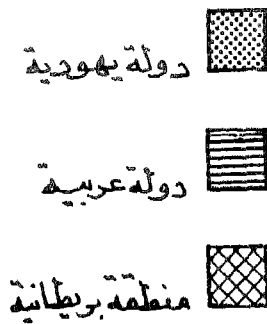 دولة يهودية
دولة عربية
منطقة بريطانية